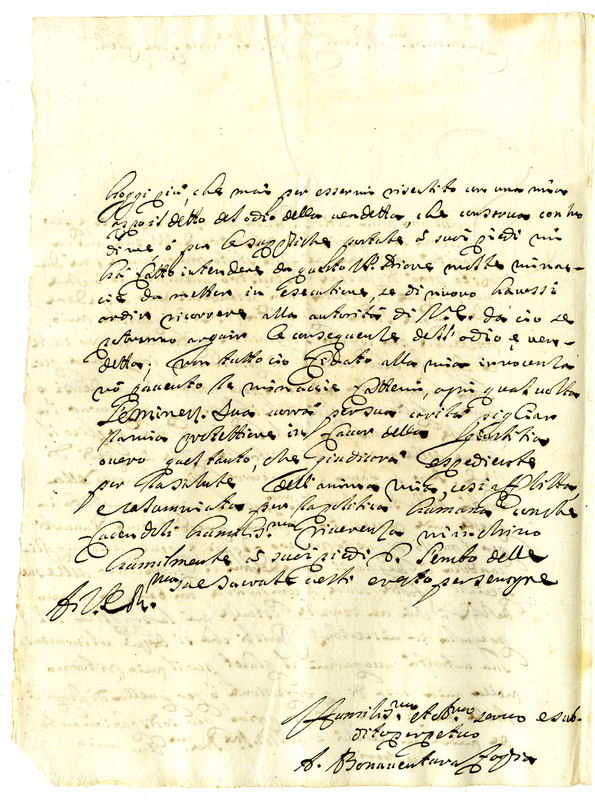 hoggi più, che mai per essermi risentito con una mia
detto del odio della vendetta, che conserva contro
di me, ò per le suppliche portate à suoi piedi mi
hà fatto intendere da questo P. Priore molte minac-
cie da metter in esecutione, se di nuovo havessi
ardir ricorrere alla autorità di da ciò se
potranno arguir le conseguenze dell'odio e ven-
detta; con tutto ciò fidato alla mia innocenza
nò pavento le minaccie fattemi, ogni qual volta
l'Eminen. Sua vorrà per sua carità pigliar
la mia protettione in favor della Giustitia
overo quel tanto, che giudicarà espediente
per la salute dell'anima mia, così afflitta,
e calunniata per la politica humana conche
facendoli humiliss.ma riverenza m'inchino
humilmente à suoi piedi Lembo delle
sue Sacrate vesti e resto per sempre
Di V. Em.
Humiliss.mo et servo e sub-
dito perpetuo
F. Bonaventura Foglia